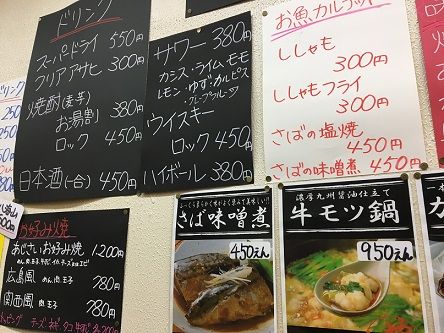 ドリンク
スーパードライ 550円
クリアアサヒ 300円
焼酎(麦芋)
お湯割 380円
ロック 450円
日本酒(一合) 450円
サワー 380円
カシス・ライム・モモ
レモン・ゆず・カルピス
グレープフルーツ
ウイスキー
ロック 450円
ハイボール 380円
お魚
ししゃも
300円
ししゃもフライ
300円
さばの塩焼
450円
さばの味噌煮 450円
さば味噌煮
450えん
濃厚九州醤油仕立て
牛モツ鍋
950えん
お好み焼
あじさいお好み焼 1,200円
広島風 780円
肉、玉子
関西風 780円
肉、玉子